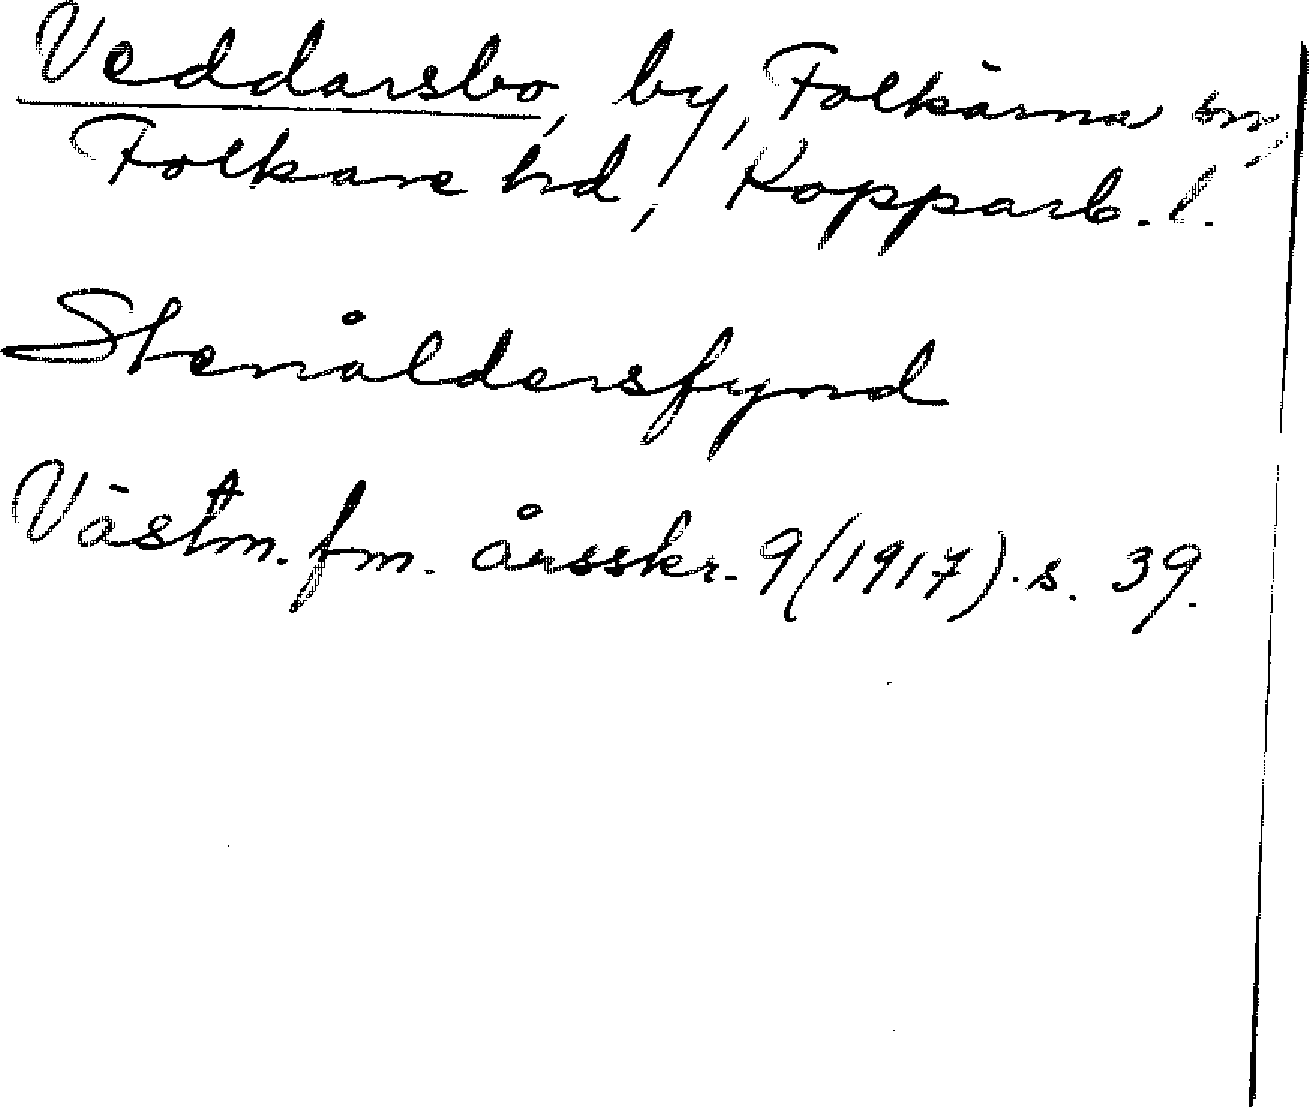 Veddarsbo, by, Folkärna sn,
Folkare hd, Kopparb. l.
Stenåldersfynd
Västm. fm. årsskr. 9 (1917). s. 39.